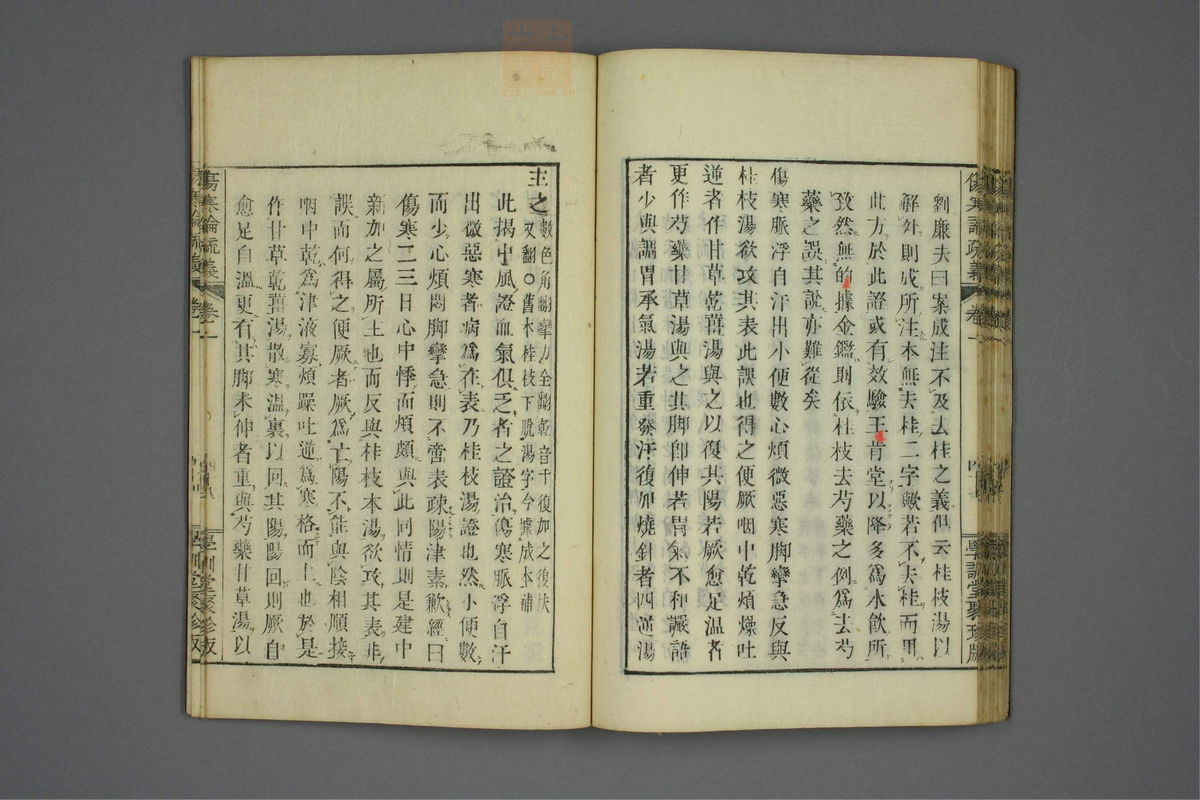 劉廉夫曰案成注不及去桂之義但云桂枝湯以
解外則成所注本無去桂二字歟若不去桂而用
此方於此證或有效驗王肯堂以降多爲水飲所
致然無的據金鑑則依桂枝去芍藥之例爲去芍
藥之誤其說亦難從矣
傷寒脈浮自汗出小便數心煩微惡寒脚攣急反與
桂枝湯欲攻其表此誤也得之便厥咽中乾煩燥吐
逆者作甘草乾薑湯與之以復其陽若厥愈足溫者
更作芍藥甘草湯與之其脚卽伸若胃氣不和讝語
者少與調胃承氣湯若重發汗復加燒針者四逆湯
傷寒論疏義 卷一 學訓堂聚珍版
主之數色角翻攣力全翻乾音干復加之復扶
又翻○舊本桂枝下脫湯字今據成本補
此揭中風證血氣俱乏者之證治傷寒脈浮自汗
出微惡寒者病爲在表乃桂枝湯證也然小便數
而少心煩悶脚攣急則不啻表疎陽津素歉經曰
傷寒二三日心中悸而煩頗與此同情則是建中
新加之屬所主也而反與桂枝本湯欲攻其表非
誤而何得之便厥者厥爲亡陽不能與陰相順接
咽中乾爲津液寡煩躁吐逆爲寒格而上也於是
作甘草乾薑湯散寒溫裏以回其陽陽回則厥自
愈足自溫更有其脚未伸者重與芍藥甘草湯以
傷寒論疏義 卷一 學訓堂聚珍版